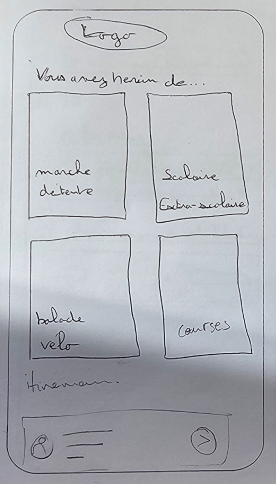 Logo
Vous avez besoin de...
marche
detente
Scolaire
Extra-scolaire
balade
velo
courses